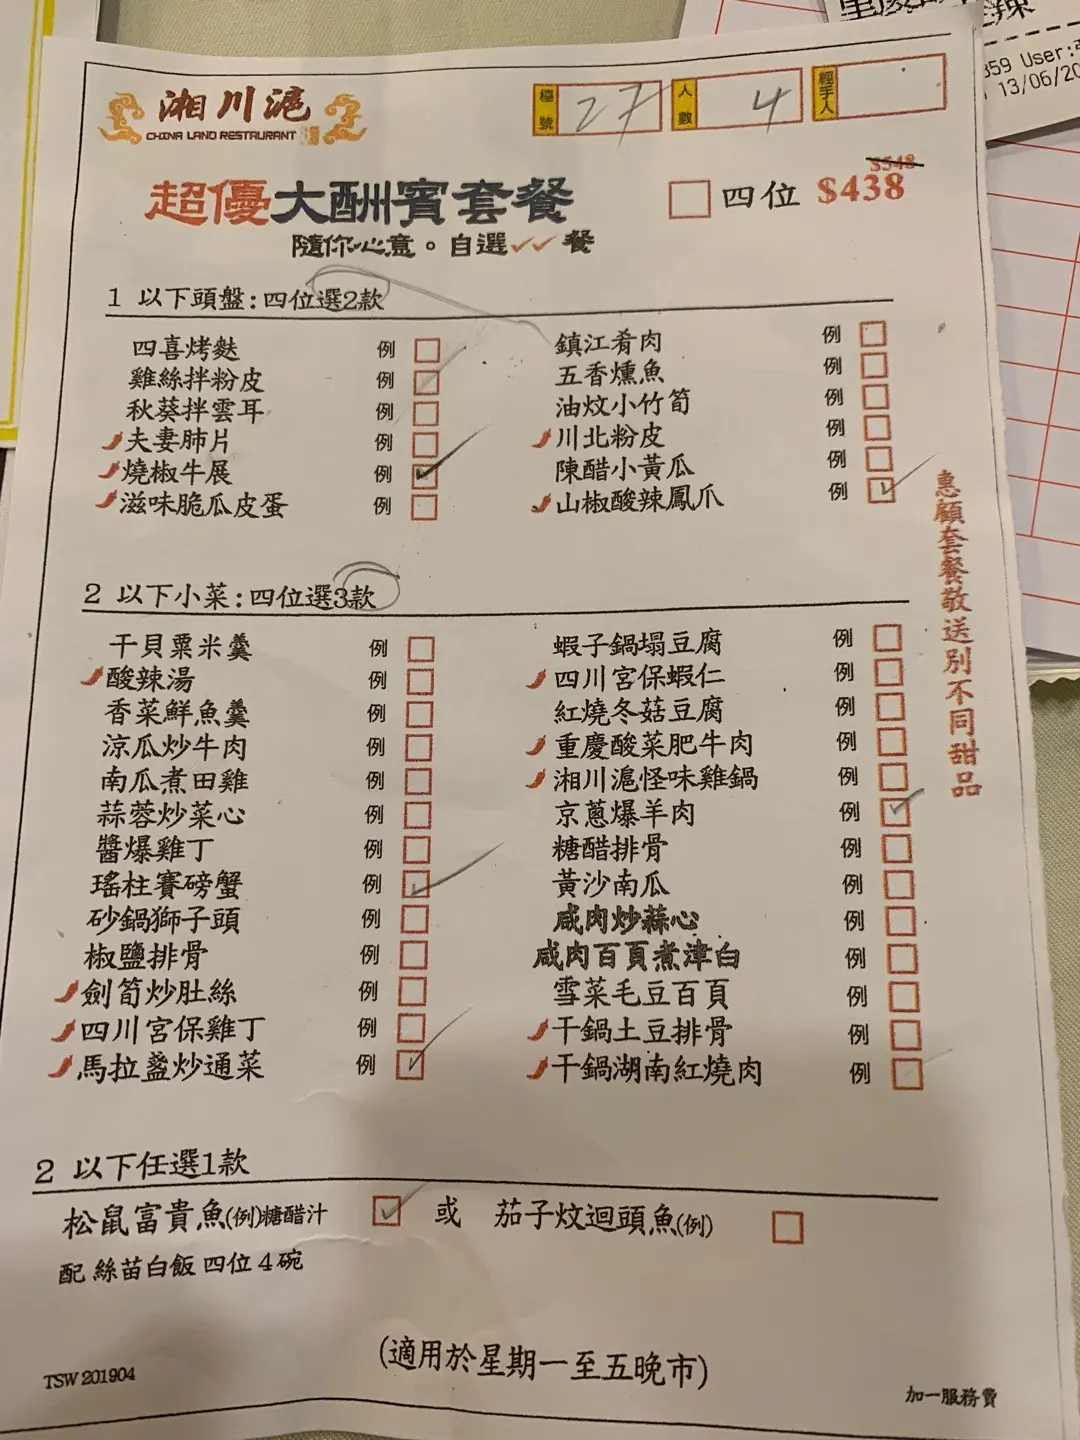 重慶
辣
859 User:
13/06/20
湘川滬
CHINA LAND RESTAURANT
檯號 27 人數 4 經手人
超優大酬賓套餐 四位 $548 $438
隨你心意。自選✓✓餐
1 以下頭盤:四位選2款
四喜烤麩 例 鎮江肴肉 例
雞絲拌粉皮 例 五香燻魚 例
秋葵拌雲耳 例 油炆小竹筍 例
夫妻肺片 例 川北粉皮 例
燒椒牛展 例 陳醋小黃瓜 例
滋味脆瓜皮蛋 例 山椒酸辣鳳爪 例
惠顧套餐敬送別不同甜品
2 以下小菜:四位選3款
干貝粟米羹 例 蝦子鍋塌豆腐 例
酸辣湯 例 四川宮保蝦仁 例
香菜鮮魚羹 例 紅燒冬菇豆腐 例
涼瓜炒牛肉 例 重慶酸菜肥牛肉 例
南瓜煮田雞 例 湘川滬怪味雞鍋 例
蒜蓉炒菜心 例 京蔥爆羊肉 例
醬爆雞丁 例 糖醋排骨 例
瑤柱賽磅蟹 例 黃沙南瓜 例
砂鍋獅子頭 例 咸肉炒蒜心 例
椒鹽排骨 例 咸肉百頁煮津白 例
劍筍炒肚絲 例 雪菜毛豆百頁 例
四川宮保雞丁 例 干鍋土豆排骨 例
馬拉盞炒通菜 例 干鍋湖南紅燒肉 例
2 以下任選1款
松鼠富貴魚(例)糖醋汁 或 茄子炆迴頭魚(例)
配 絲苗白飯 四位 4 碗
(適用於星期一至五晚市)
TSW 201904
加一服務費